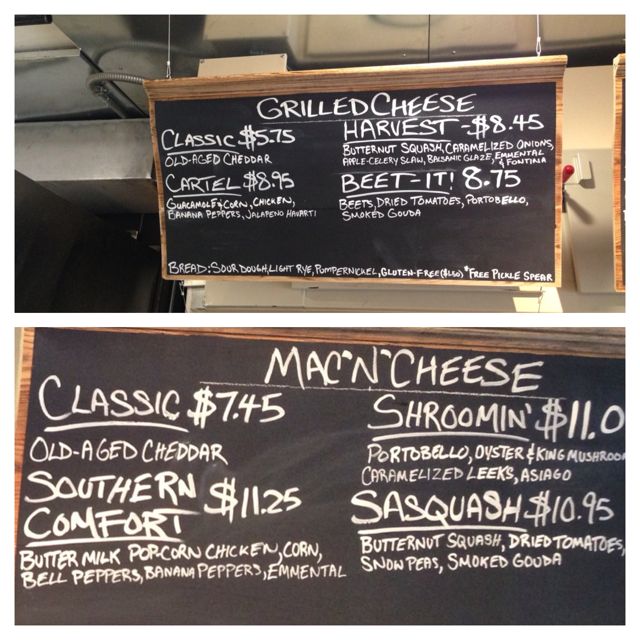 GRILLED CHEESE
CLASSIC - $5.75
OLD-AGED CHEDDAR
CARTEL $8.95
GUACAMOLE & CORN, CHICKEN,
BANANA PEPPERS, JALAPENO HAVARTI
HARVEST - $8.45
BUTTERNUT SQUASH, CARAMELIZED ONIONS,
APPLE-CELERY SLAW, BALSAMIC GLAZE, EMMENTAL
& FONTINA
BEET-IT! 8.75
BEETS, DRIED TOMATOES, PORTOBELLO,
SMOKED GOUDA
BREAD: SOUR DOUGH, LIGHT RYE, PUMPERNICKEL, GLUTEN-FREE ($1.50) *FREE PICKLE SPEAR
MAC"N"CHEESE
CLASSIC $7.45
OLD-AGED CHEDDAR
SOUTHERN
COMFORT $11.25
BUTTER MILK POPCORN CHICKEN, CORN,
BELL PEPPERS, BANANA PEPPERS, EMMENTAL
SHROOMIN' $11.0
PORTOBELLO, OYSTER & KING MUSHROO
CARAMELIZED LEEKS, ASIAGO
SASQUASH $10.95
BUTTERNUT SQUASH, DRIED TOMATOES,
SNOW PEAS, SMOKED GOUDA